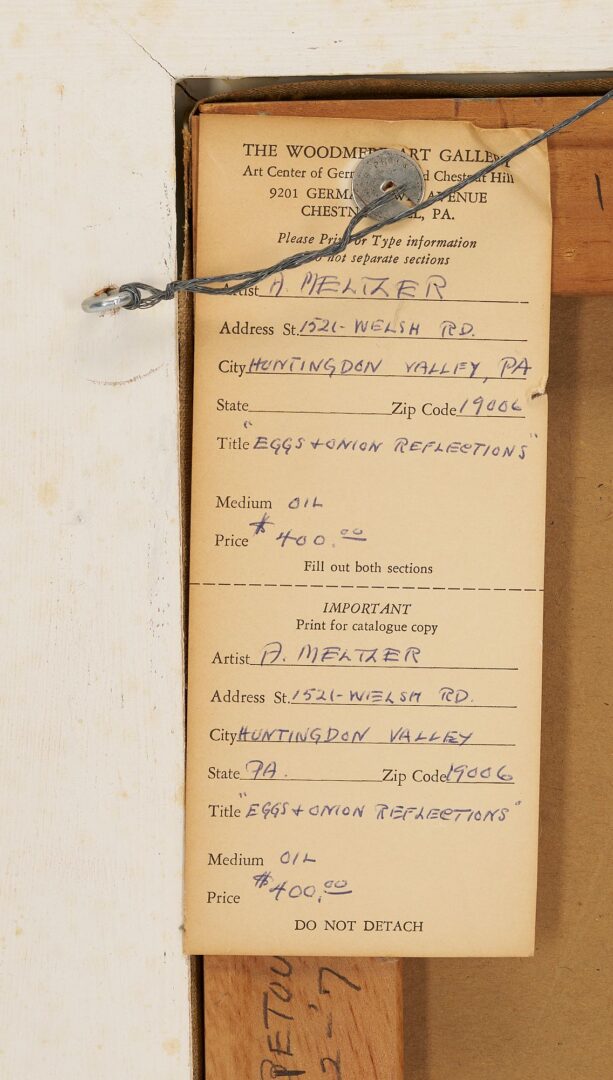 THE WOODMERE ART GALLERY
Art Center of Ger d Chestnut Hill
9201 GERMA AVENUE
CHESTN LL, PA.
Please Print or Type information
Do not separate sections
Artist A. MELTZER
Address St. 1521- WELSH RD.
City HUNTINGDON VALLEY, PA
State Zip Code 19006
Title "EGGS + ONION REFLECTIONS"
Medium OIL
Price $400.00
Fill out both sections
IMPORTANT
Print for catalogue copy
Artist A. MELTZER
Address St. 1521- WELSH RD.
City HUNTINGDON VALLEY
State PA. Zip Code 19006
Title "EGGS + ONION REFLECTIONS"
Medium OIL
Price $400.00
DO NOT DETACH
RETOU
2-'7